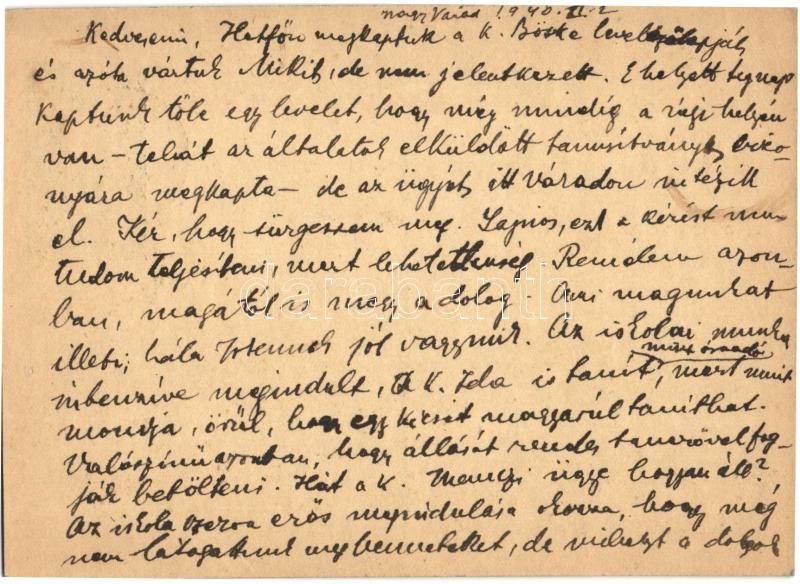 Nagyvárad 1940. XI. 2
Kedveseim, Hétfőn megkaptuk a k. Böske levelezőlapját
és azóta vártuk Mikit, de nem jelentkezett. E helyett tegnap
kaptunk tőle egy levelet, hogy még mindig a régi helyén
van – tehát az általatok elküldött tanusítványt bizo-
nyára megkapta – de az ügyét itt Váradon intézik
el. Kér, hogy sürgessem meg. Sajnos, ezt a kérést nem
tudom teljesíteni, mert lehetetlenség. Remélem azon-
ban, magától is megy a dolog. Ami magunkat
illeti, hála Istennek jól vagyunk. Az iskolai munka
intenzíve megindult, a k. Ida is tanít, mint óraadó, mert mint
mondja, örül, hogy egy kicsit magyarul taníthat.
Valószínű azonban, hogy állását rendes tanerővel fog-
ják betölteni. Hát a k. ügye hogyan áll?
Az iskola erős megindulása okozza, hogy még
nem látogattunk meg benneteket, de mihelyt a dolgok
darabanth